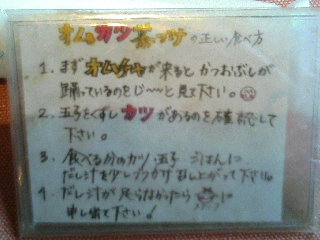 オムカツ茶づけの正しい食べ方
1. まずオムチャが来るとかつおぶしが
踊っているのをじ〜〜と見て下さい。
2. 玉子をくずしカツがあるのを確認して
下さい。
3. 食べる分のカツ・玉子・ごはんに
だし汁を少しづつかけ召し上がって下さい。
4. だし汁が足らなかったら に
申し出て下さい!